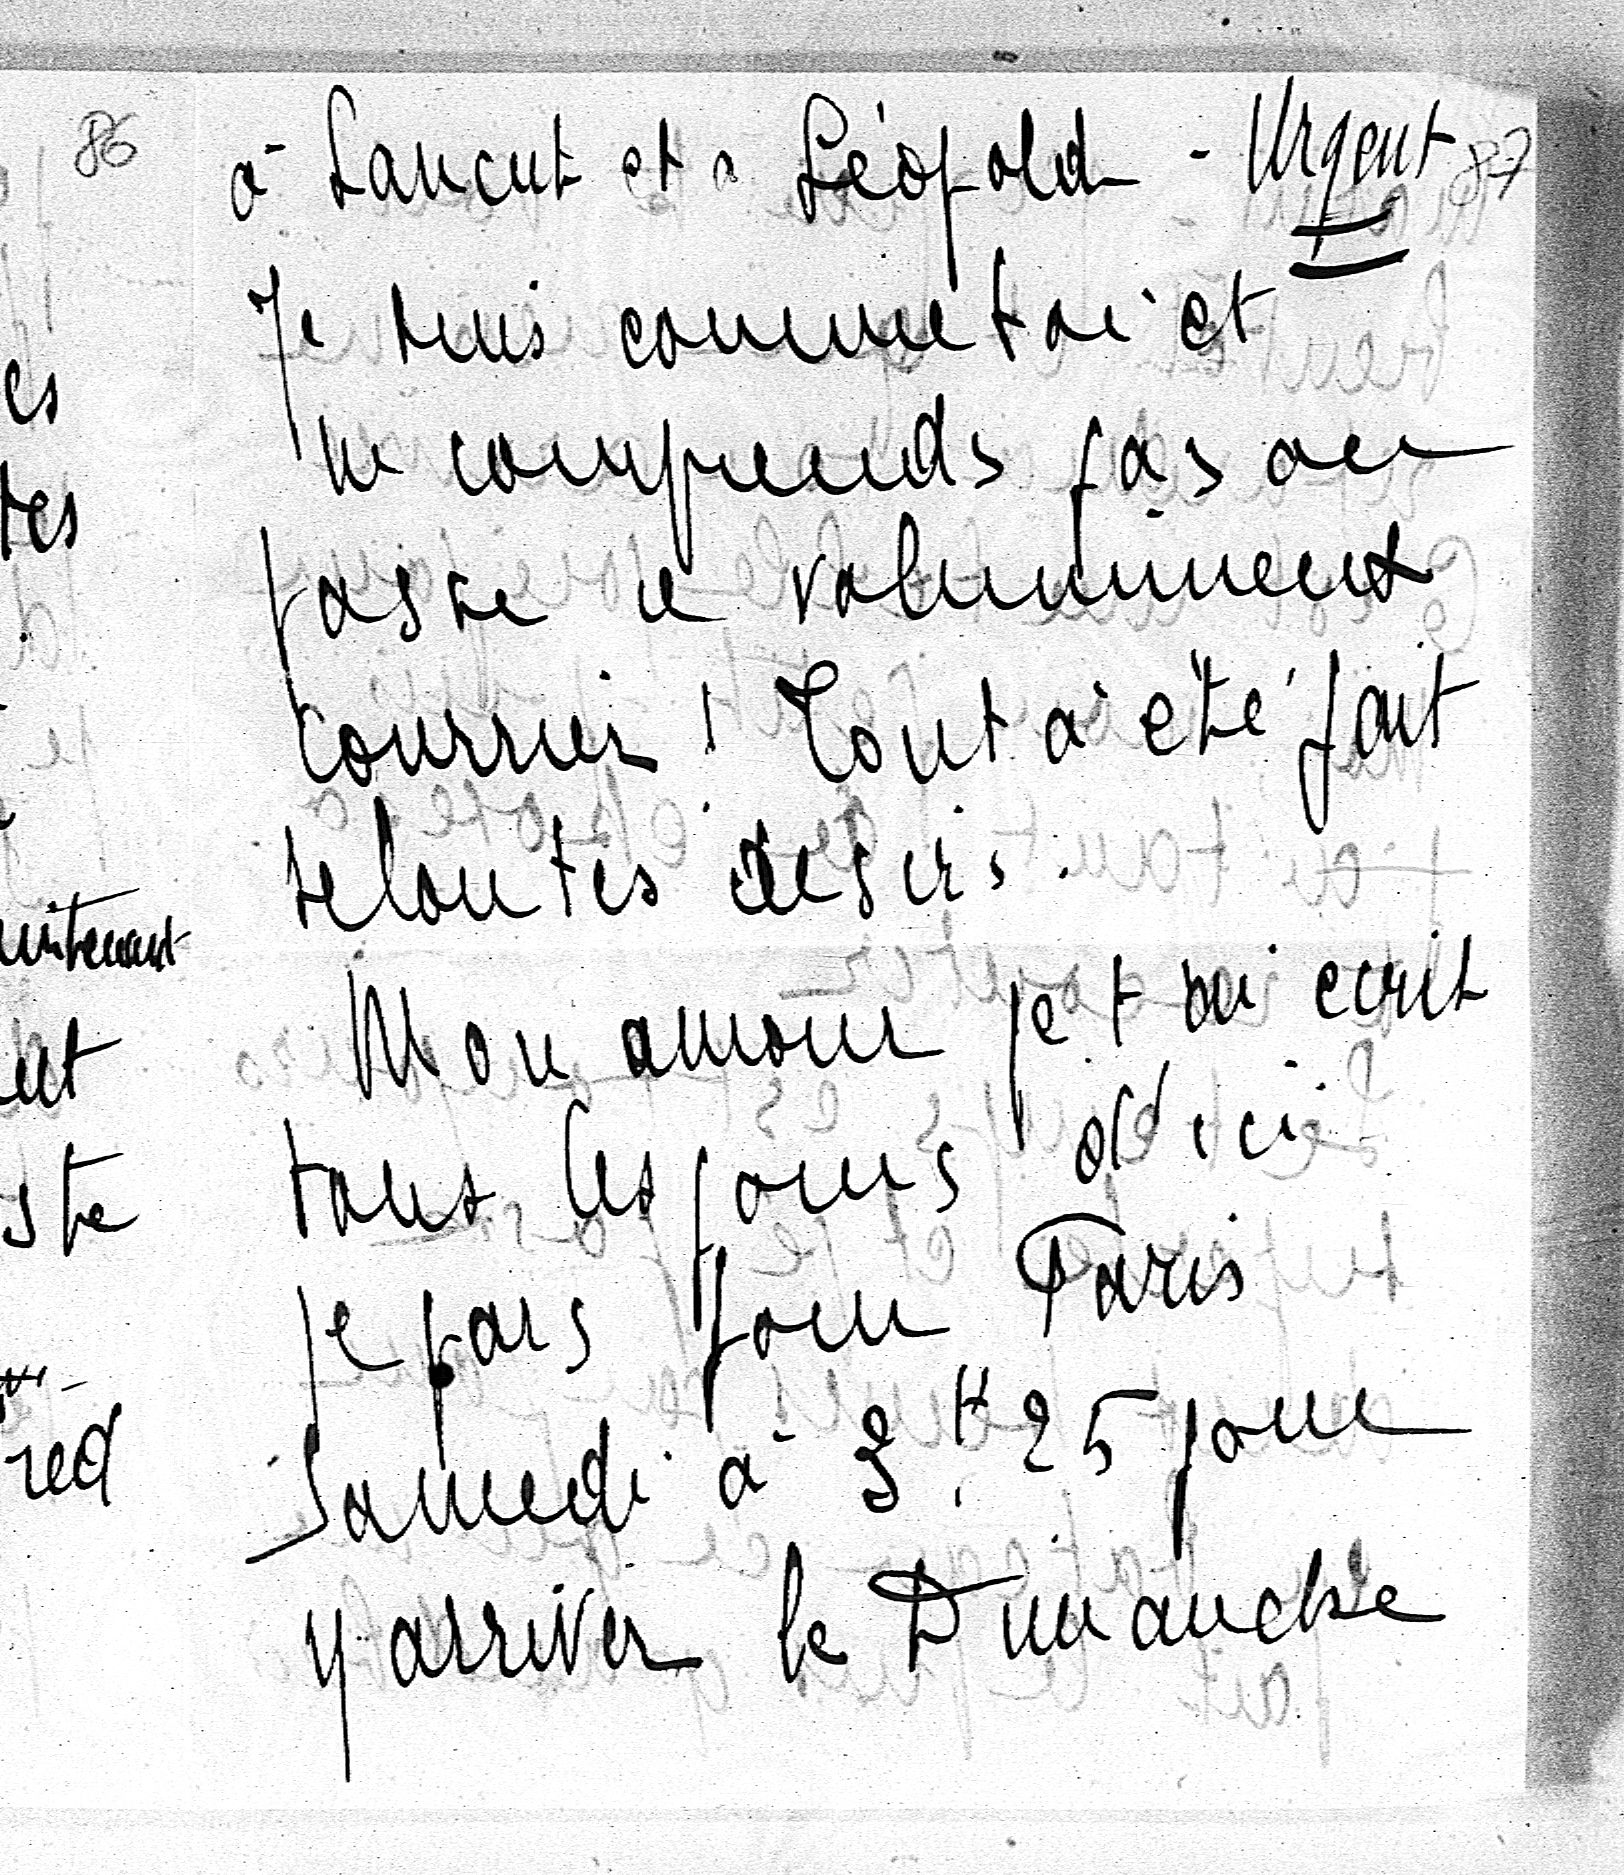 86
à Lancut et à Léopold - Urgent 87
Je suis comme toi et
ne comprends pas où
passe ce volumineux
courrier ! Tout a été fait
selon tes désirs.
Mon amour je t'ai écrit
tous les jours d'ici.
je pars pour Paris
Samedi à 3H 25 pour
y arriver le Dimanche
es
tes
ste
red